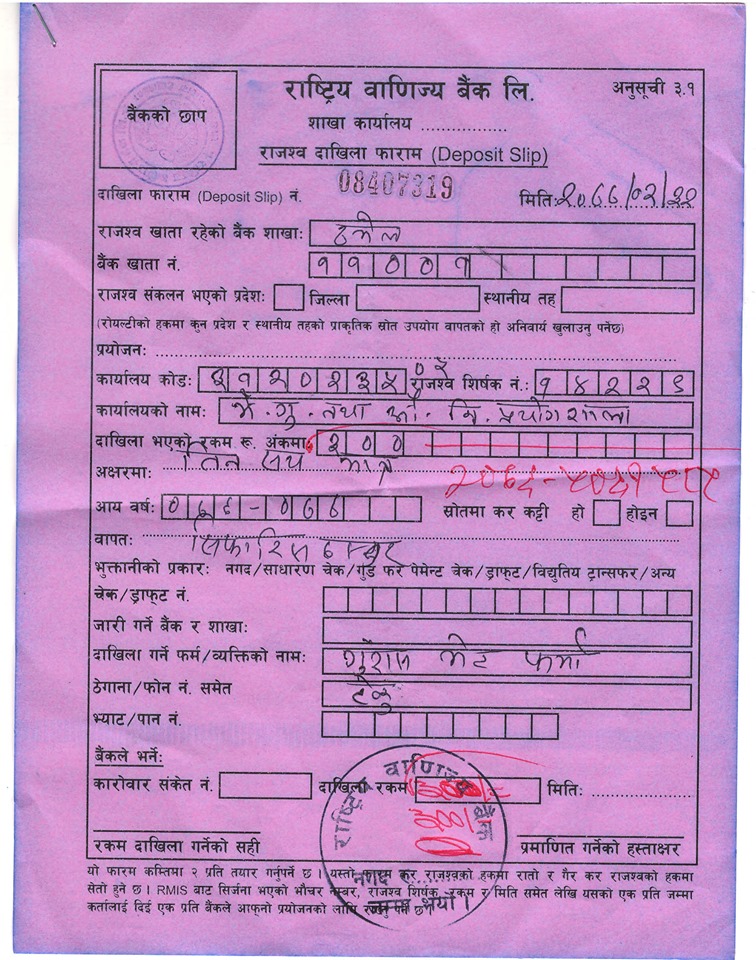 राष्ट्रिय वाणिज्य बैंक लि.
अनुसूची ३.१
बैंकको छाप
शाखा कार्यालय ....................
राजश्व दाखिला फाराम (Deposit Slip)
दाखिला फाराम (Deposit Slip) नं. 08407319
मिति:
राजश्व खाता रहेको बैंक शाखा:
बैंक खाता नं. ११००१
राजश्व संकलन भएको प्रदेश: जिल्ला स्थानीय तह
(रोयल्टीको हकमा कुन प्रदेश र स्थानीय तहको प्राकृतिक स्रोत उपयोग वापतको हो अनिवार्य खुलाउनु पर्नेछ)
प्रयोजन:
कार्यालय कोड: राजश्व शिर्षक नं.: १४२२९
कार्यालयको नाम:
दाखिला भएको रकम रू. अंकमा ३००
अक्षरमा: तिन सय मात्र
आय वर्ष: स्रोतमा कर कट्टी हो होइन
वापत: सिफारिस दस्तुर
भुक्तानीको प्रकार: नगद/साधारण चेक/गुड फर पेमेन्ट चेक/ड्राफ्ट/विद्युतिय ट्रान्सफर/अन्य
चेक/ड्राफ्ट नं.
जारी गर्ने बैंक र शाखा:
दाखिला गर्ने फर्म/व्यक्तिको नाम: फर्मा
ठेगाना/फोन नं. समेत टेकु
भ्याट/पान नं.
बैंकले भर्ने:
कारोवार संकेत नं. दाखिला रकम मिति:
राष्ट्रिय वाणिज्य बैंक
रकम दाखिला गर्नेको सही प्रमाणित गर्नेको हस्ताक्षर
यो फारम कम्तिमा २ प्रति तयार गर्नुपर्ने छ । यस्तो फारम कर राजश्वको हकमा रातो र गैर कर राजश्वको हकमा
सेतो हुने छ । RMIS बाट सिर्जना भएको भौचर नम्बर, राजश्व शिर्षक, रकम र मिति समेत लेखि यसको एक प्रति जम्मा
कर्तालाई दिई एक प्रति बैंकले आफ्नो प्रयोजनको लागि राख्नु पर्ने छ ।